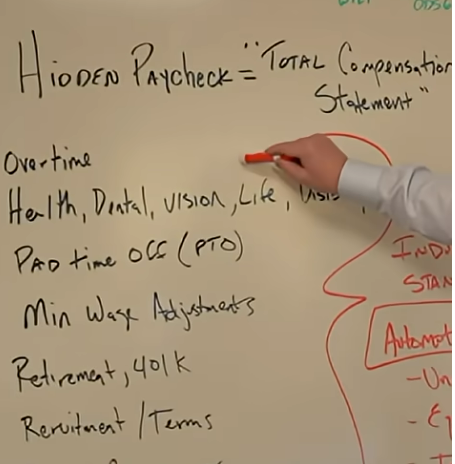 Hidden Paycheck = "Total Compensation
Statement"
Overtime
Health, Dental, Vision, Life,
Paid time Off (PTO)
Min Wage Adjustments
Retirement, 401K
Reruitment / Terms
STAN
Automot
- Un